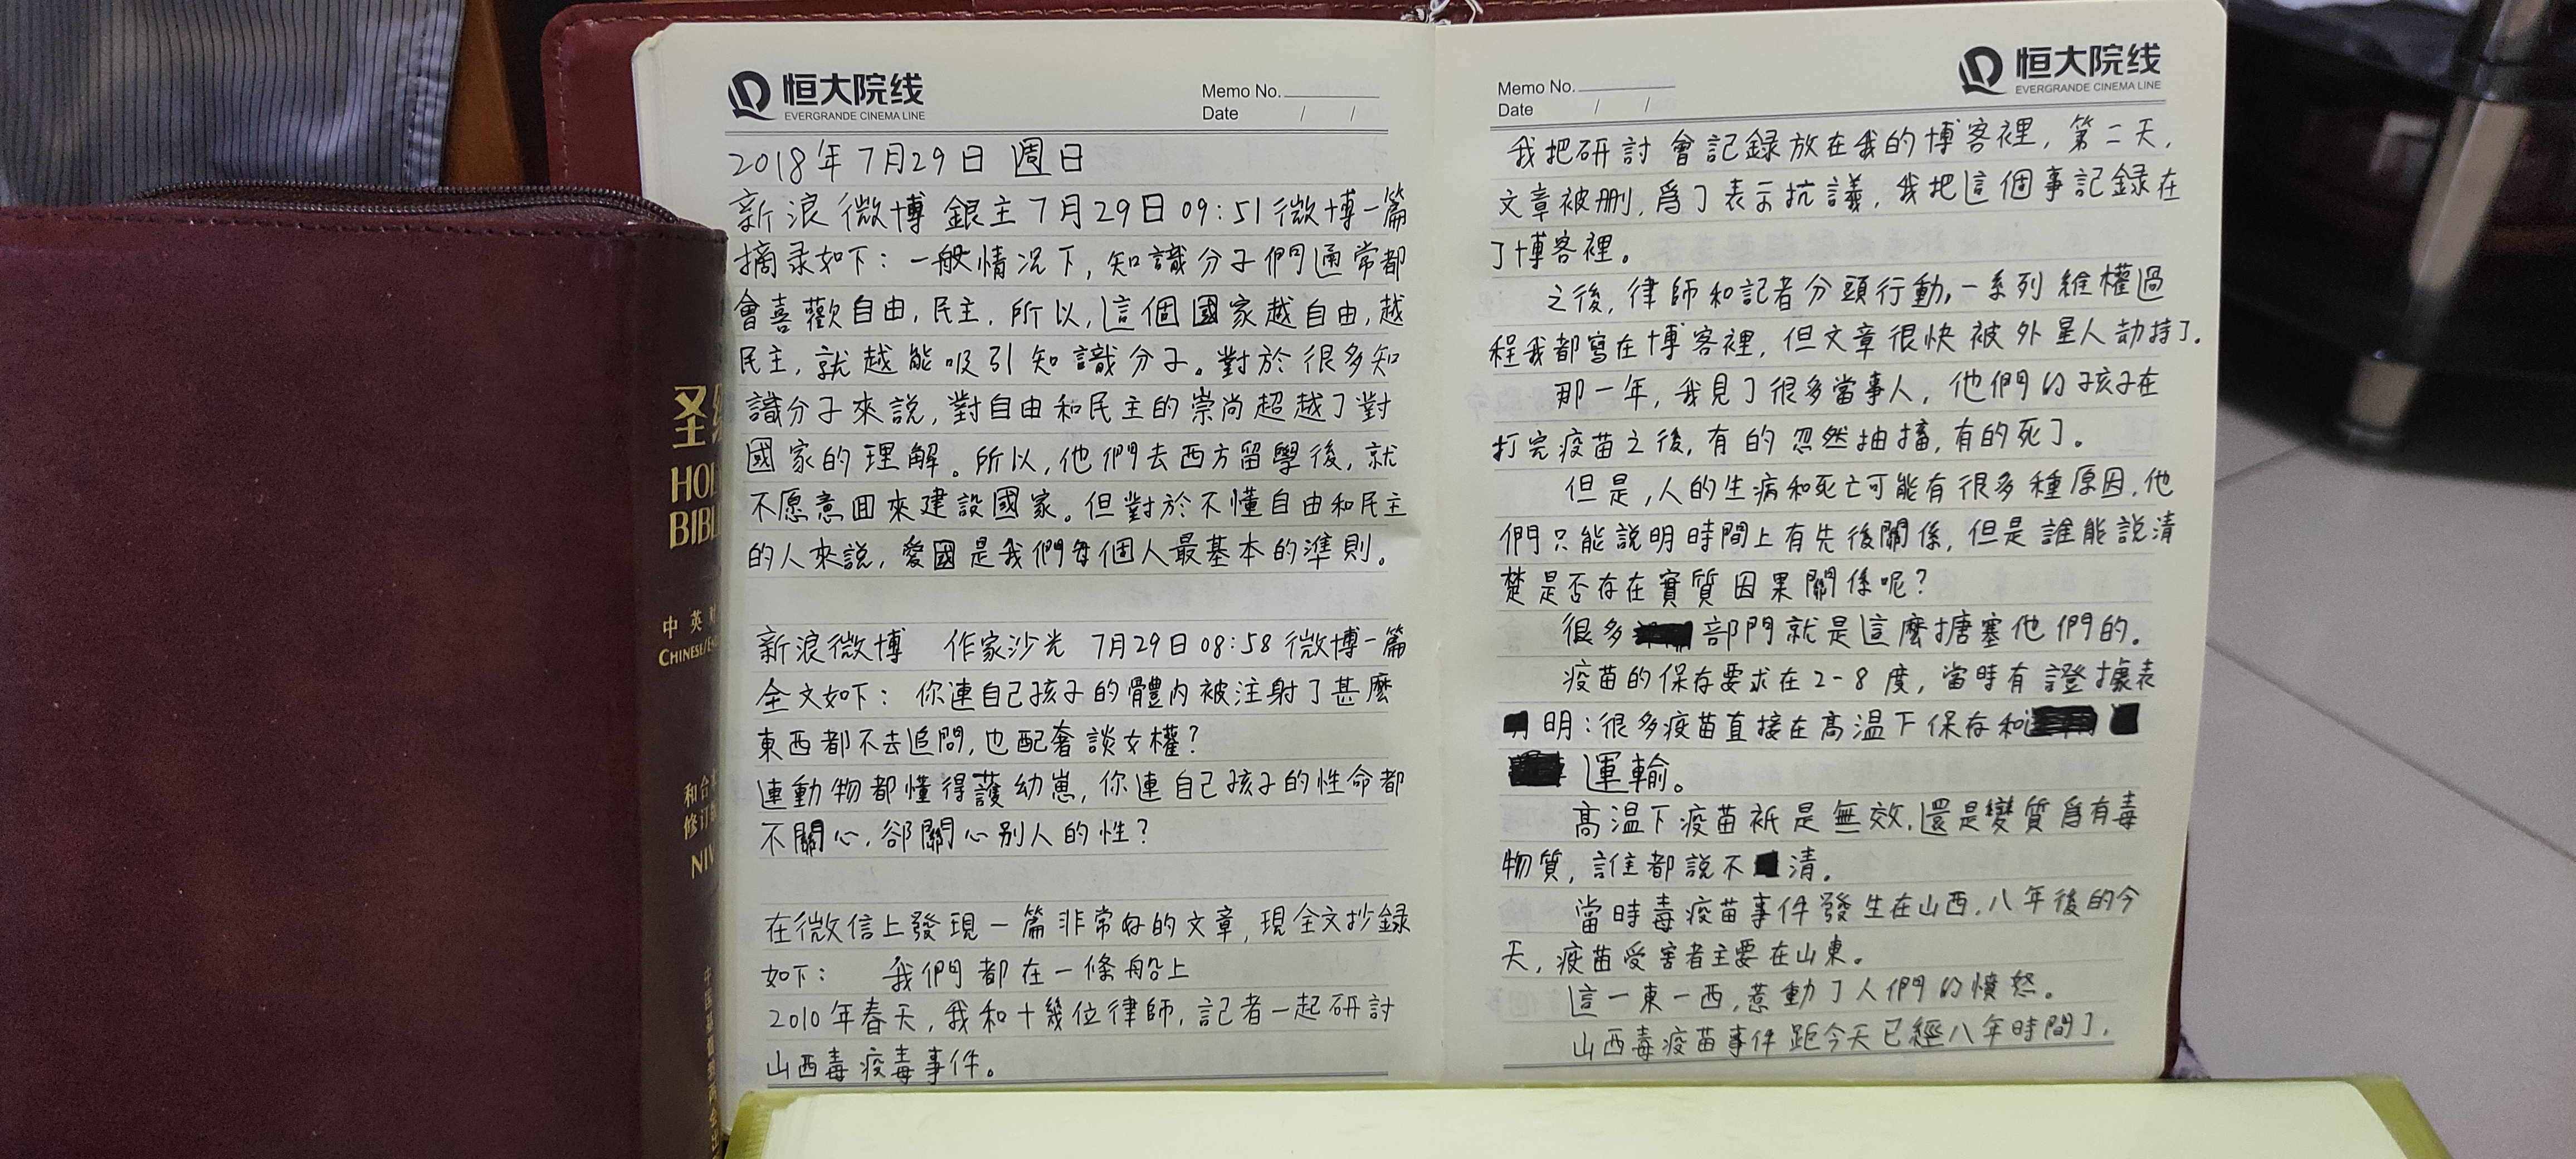 圣经
HOLY
BIBL
中英对
CHINESE/EN
和合本
修订版
NIV
恒大院线
EVERGRANDE CINEMA LINE
Memo No.
Date / /
2018年7月29日 週日
新浪微博銀主7月29日09:51微博一篇
摘录如下：一般情况下，知識分子們通常都
會喜歡自由，民主，所以，這個國家越自由，越
民主，就越能吸引知識分子。對於很多知
識分子來説，對自由和民主的崇尚超越了對
國家的理解。所以，他們去西方留學後，就
不愿意回來建設國家。但對於不懂自由和民主
的人來説，愛國是我們每個人最基本的準則。
新浪微博 作家沙光 7月29日08:58微博一篇
全文如下： 你連自己孩子的體內被注射了甚麼
東西都不去追問，也配奢談女權？
連動物都懂得護幼崽，你連自己孩子的性命都
不關心，卻關心别人的性？
在微信上發現一篇非常好的文章，現全文抄録
如下： 我們都在一條船上
2010年春天，我和十幾位律師，記者一起研討
山西毒疫毒事件。
恒大院线
EVERGRANDE CINEMA LINE
Memo No.
Date / /
我把研討會記録放在我的博客裡，第二天，
文章被刪，爲了表示抗議，我把這個事記録在
了博客裡。
之後，律師和記者分頭行動，一系列維權過
程我都寫在博客裡，但文章很快被外星人劫持了。
那一年，我見了很多當事人，他們的孩子在
打完疫苗之後，有的忽然抽搐，有的死了。
但是，人的生病和死亡可能有很多種原因，他
們只能説明時間上有先後關係，但是誰能説清
楚是否存在實質因果關係呢？
很多 部門就是這麼搪塞他們的。
疫苗的保存要求在2-8度，當時有證據表
明：很多疫苗直接在高温下保存和
運輸。
高温下疫苗衹是無效，還是變質爲有毒
物質，誰都説不清。
當時毒疫苗事件發生在山西，八年後的今
天，疫苗受害者主要在山東。
這一東一西，惹動了人們的憤怒。
山西毒疫苗事件距今天已經八年時間了，